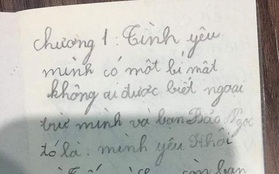 chương 1: Tình yêu
mình có một bí mật
không ai được biết ngoại
trừ mình và bạn Bảo Ngọc
đó là. mình yêu Khôi